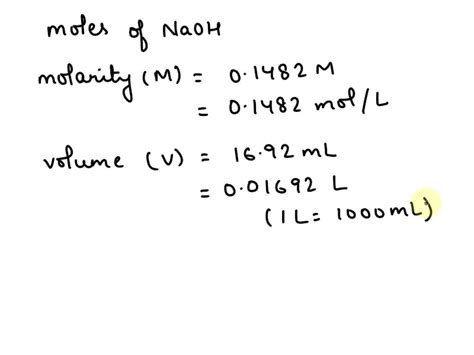 moles of NaOH
molarity (M) = 0.1482 M
= 0.1482 mol/L
volume (V) = 16.92 mL
= 0.01692 L
(1L = 1000mL)